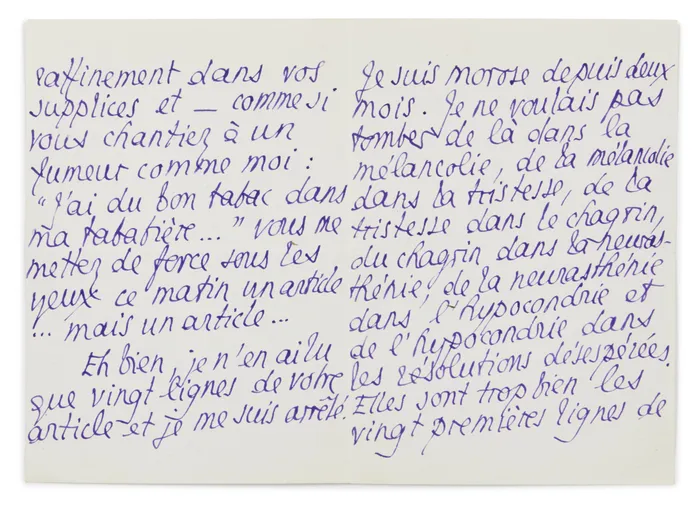 raffinement dans vos
supplices et — comme si
vous chantiez à un
fumeur comme moi :
"J'ai du bon tabac dans
ma tabatière..." vous me
mettez de force sous les
yeux ce matin un article
... mais un article...
Eh bien, je n'en ai lu
que vingt lignes de votre
article et je me suis arrêté.
Je suis morose depuis deux
mois. Je ne voulais pas
tomber de là dans la
mélancolie, de la mélancolie
dans la tristesse, de la
tristesse dans le chagrin,
du chagrin dans la neuras-
thénie, de la neurasthénie
dans l'hypocondrie et
de l'hypocondrie dans
les résolutions désespérées.
Elles sont trop bien les
vingt premières lignes de